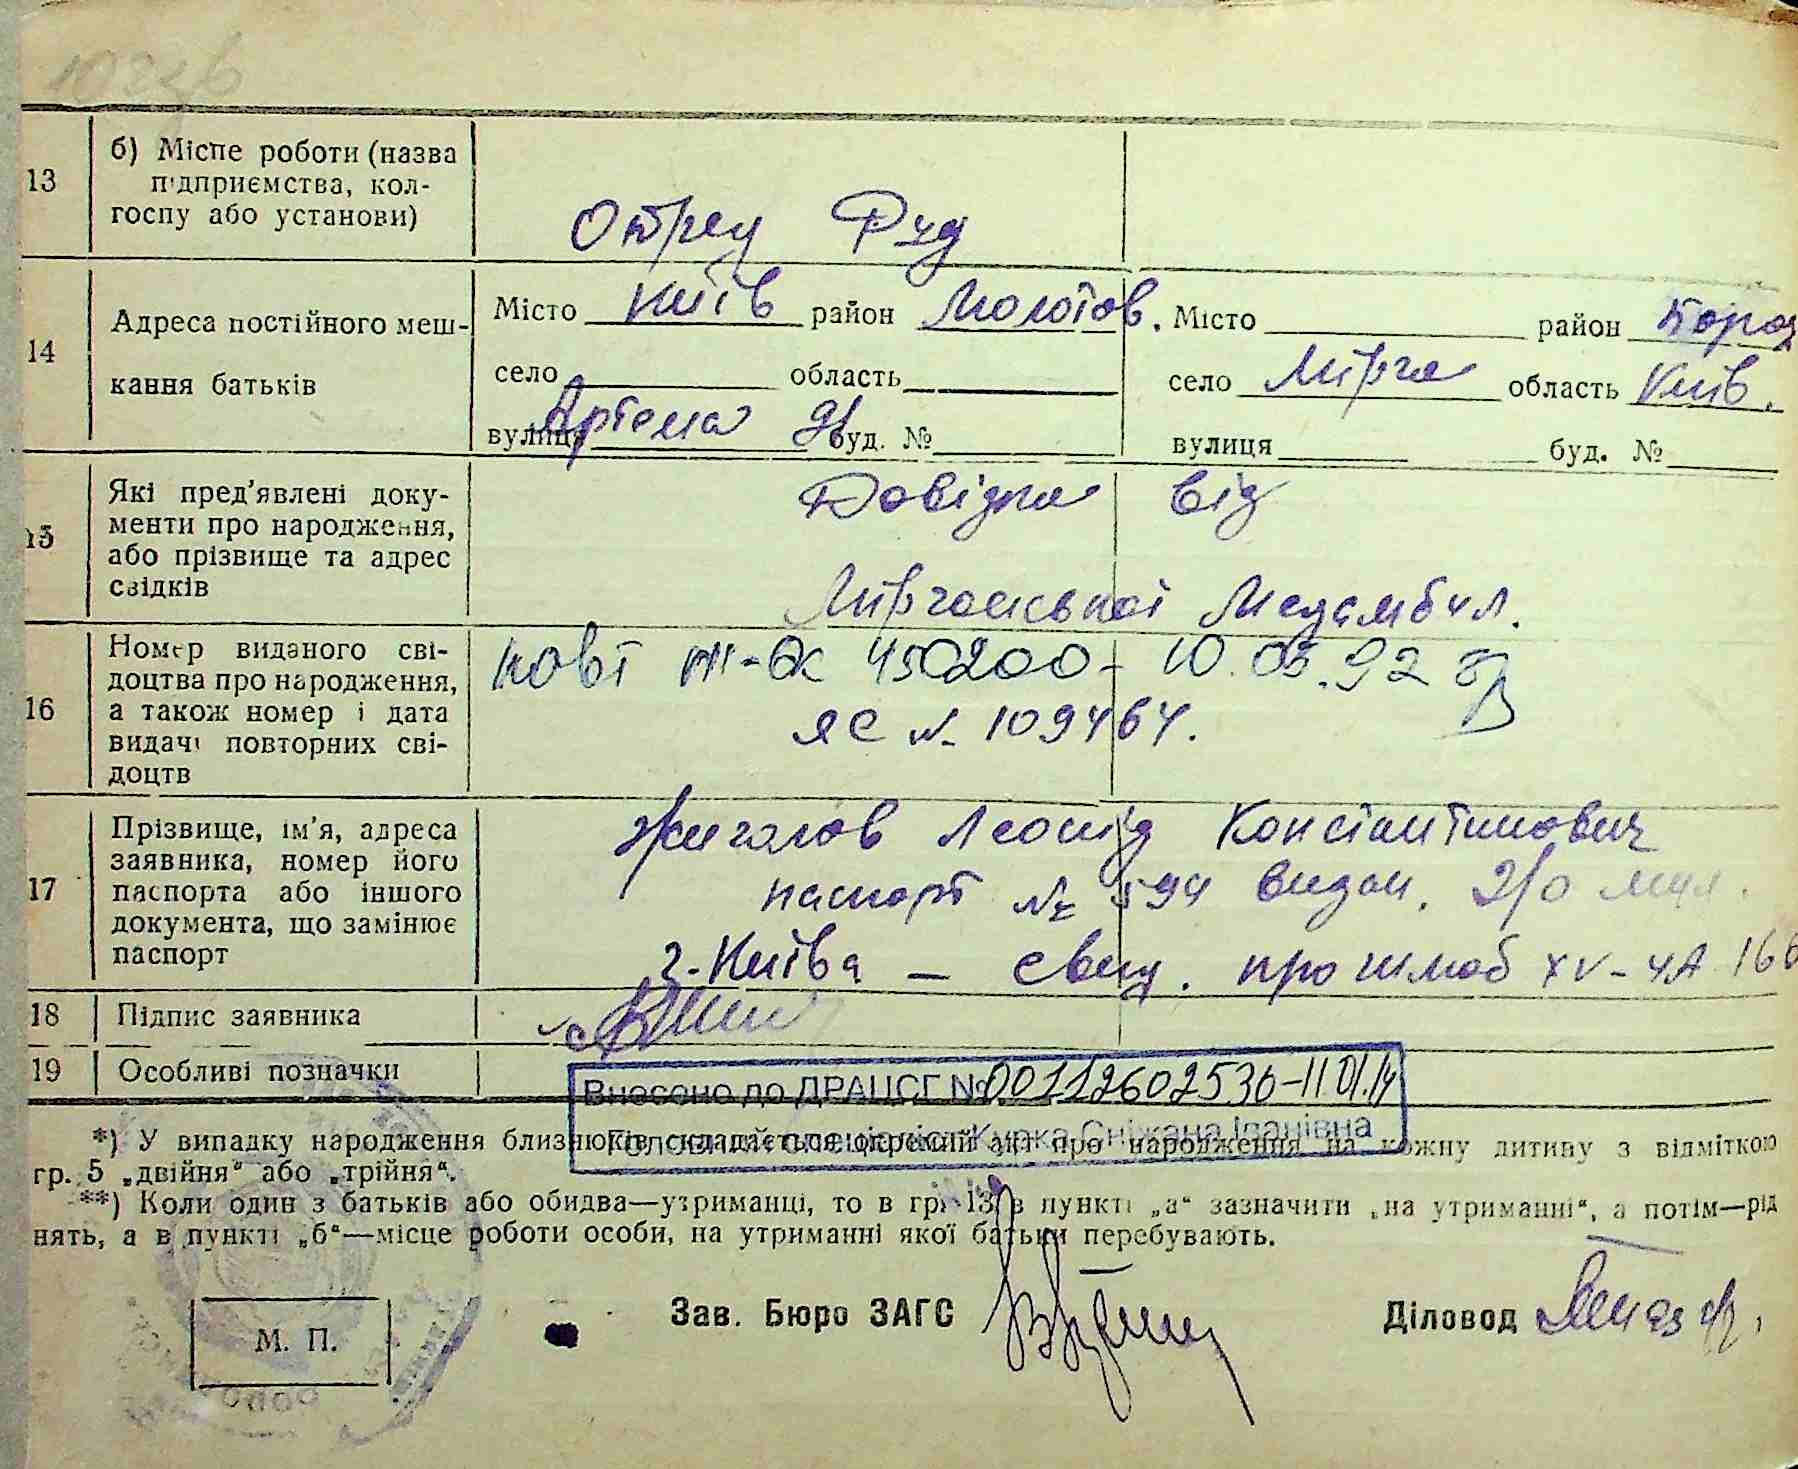 13 б) Місце роботи (назва
підприємства, кол-
госпу або установи)
14 Адреса постійного меш-
кання батьків
Місто Київ район Молотов. Місто район
село область село Мирча область Київ.
вулиця Артема 91 буд. № вулиця буд. №
15 Які пред'явлені доку-
менти про народження,
або прізвище та адрес
свідків
Довідка від
Мирчанської
16 Номер виданого сві-
доцтва про народження,
а також номер і дата
видачі повторних сві-
доцтв
повт 450200 - 10.03.92
ЯС № 109464.
17 Прізвище, ім'я, адреса
заявника, номер його
паспорта або іншого
документа, що замінює
паспорт
Жигалов Леонід Константинович
паспорт № 594 видан. 2/о міл.
г. Київа — свид. про шлюб XV-ЧА 166
18 Підпис заявника
19 Особливі позначки
Внесено до ДРАЦСГ №00112602530-11.01.14
Головний спеціаліст Курка Сніжана Іванівна
*) У випадку народження близнюків складається окремий акт про народження на кожну дитину з відміткою
гр. 5 „двійня“ або „трійня“.
**) Коли один з батьків або обидва—утриманці, то в гр. 13 в пункті „а“ зазначити „на утриманні“, а потім—рід
нять, а в пункті „б“—місце роботи особи, на утриманні якої батьки перебувають.
М. П.
Зав. Бюро ЗАГС
Діловод